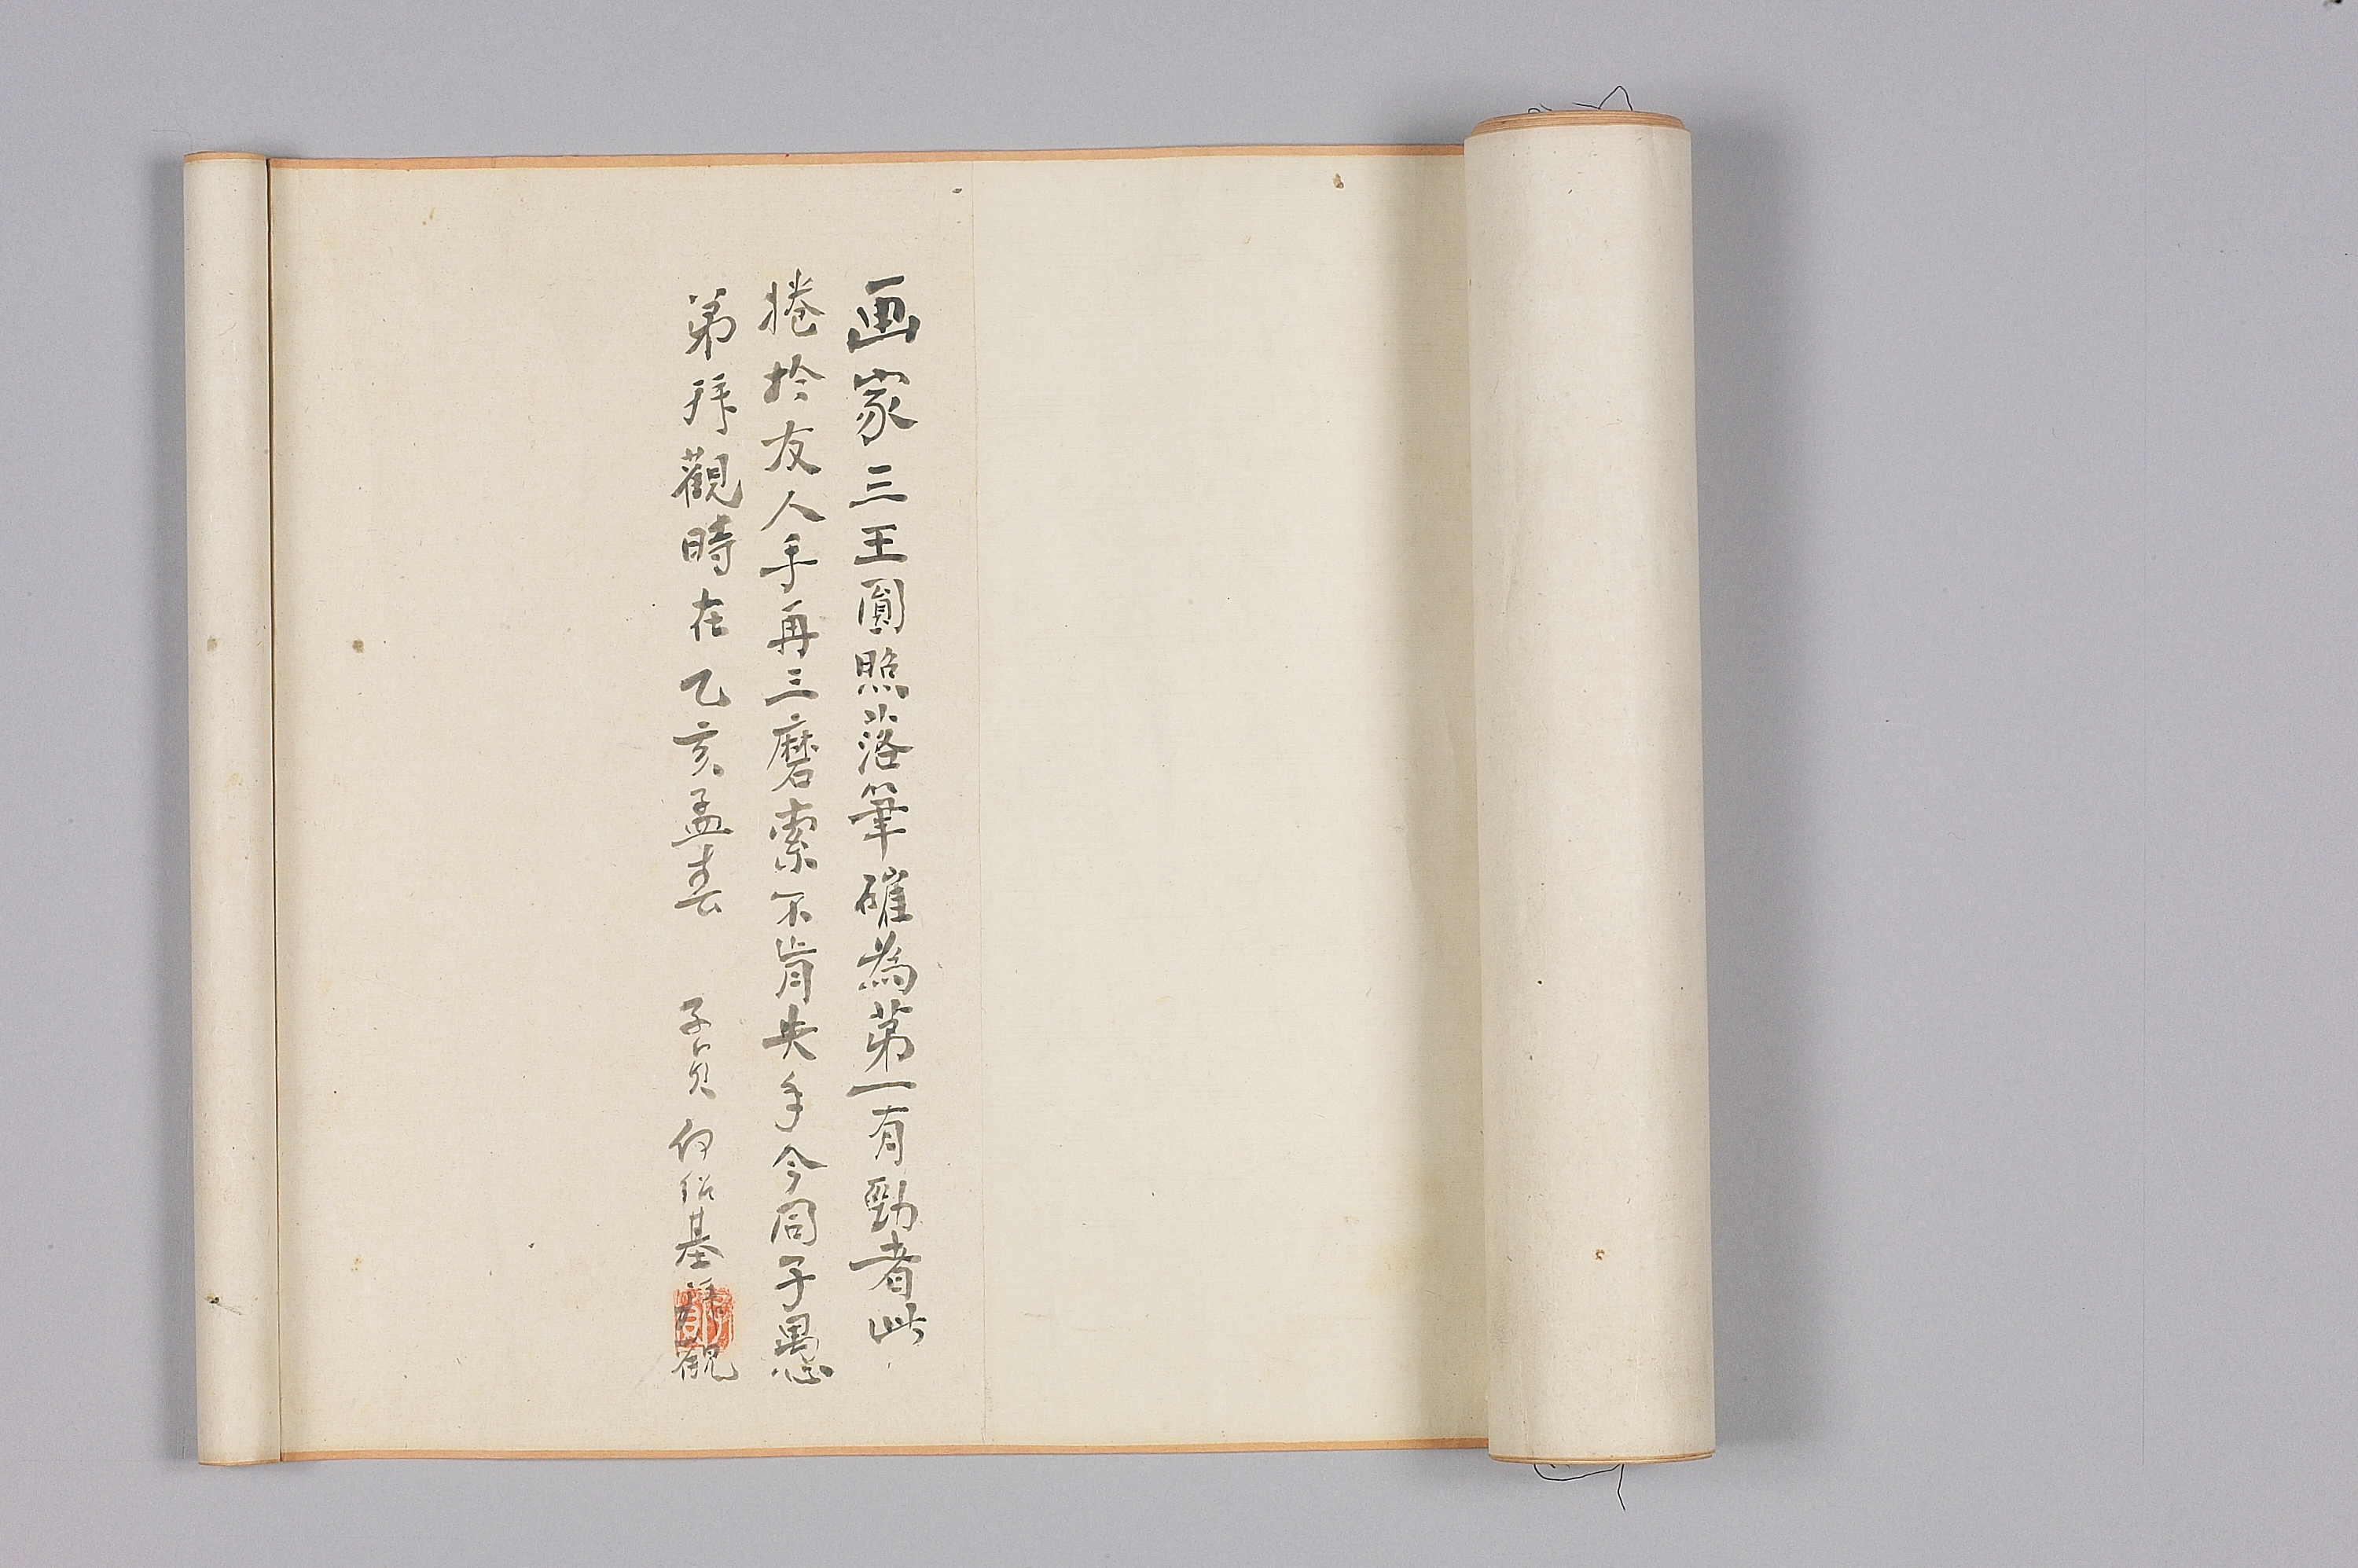 画家三王圓照落筆確為第一有勁者此
捲於友人手再三磨索不肯失手今同子愚
弟拜觀時在乙亥孟春 子貞何紹基拜觀